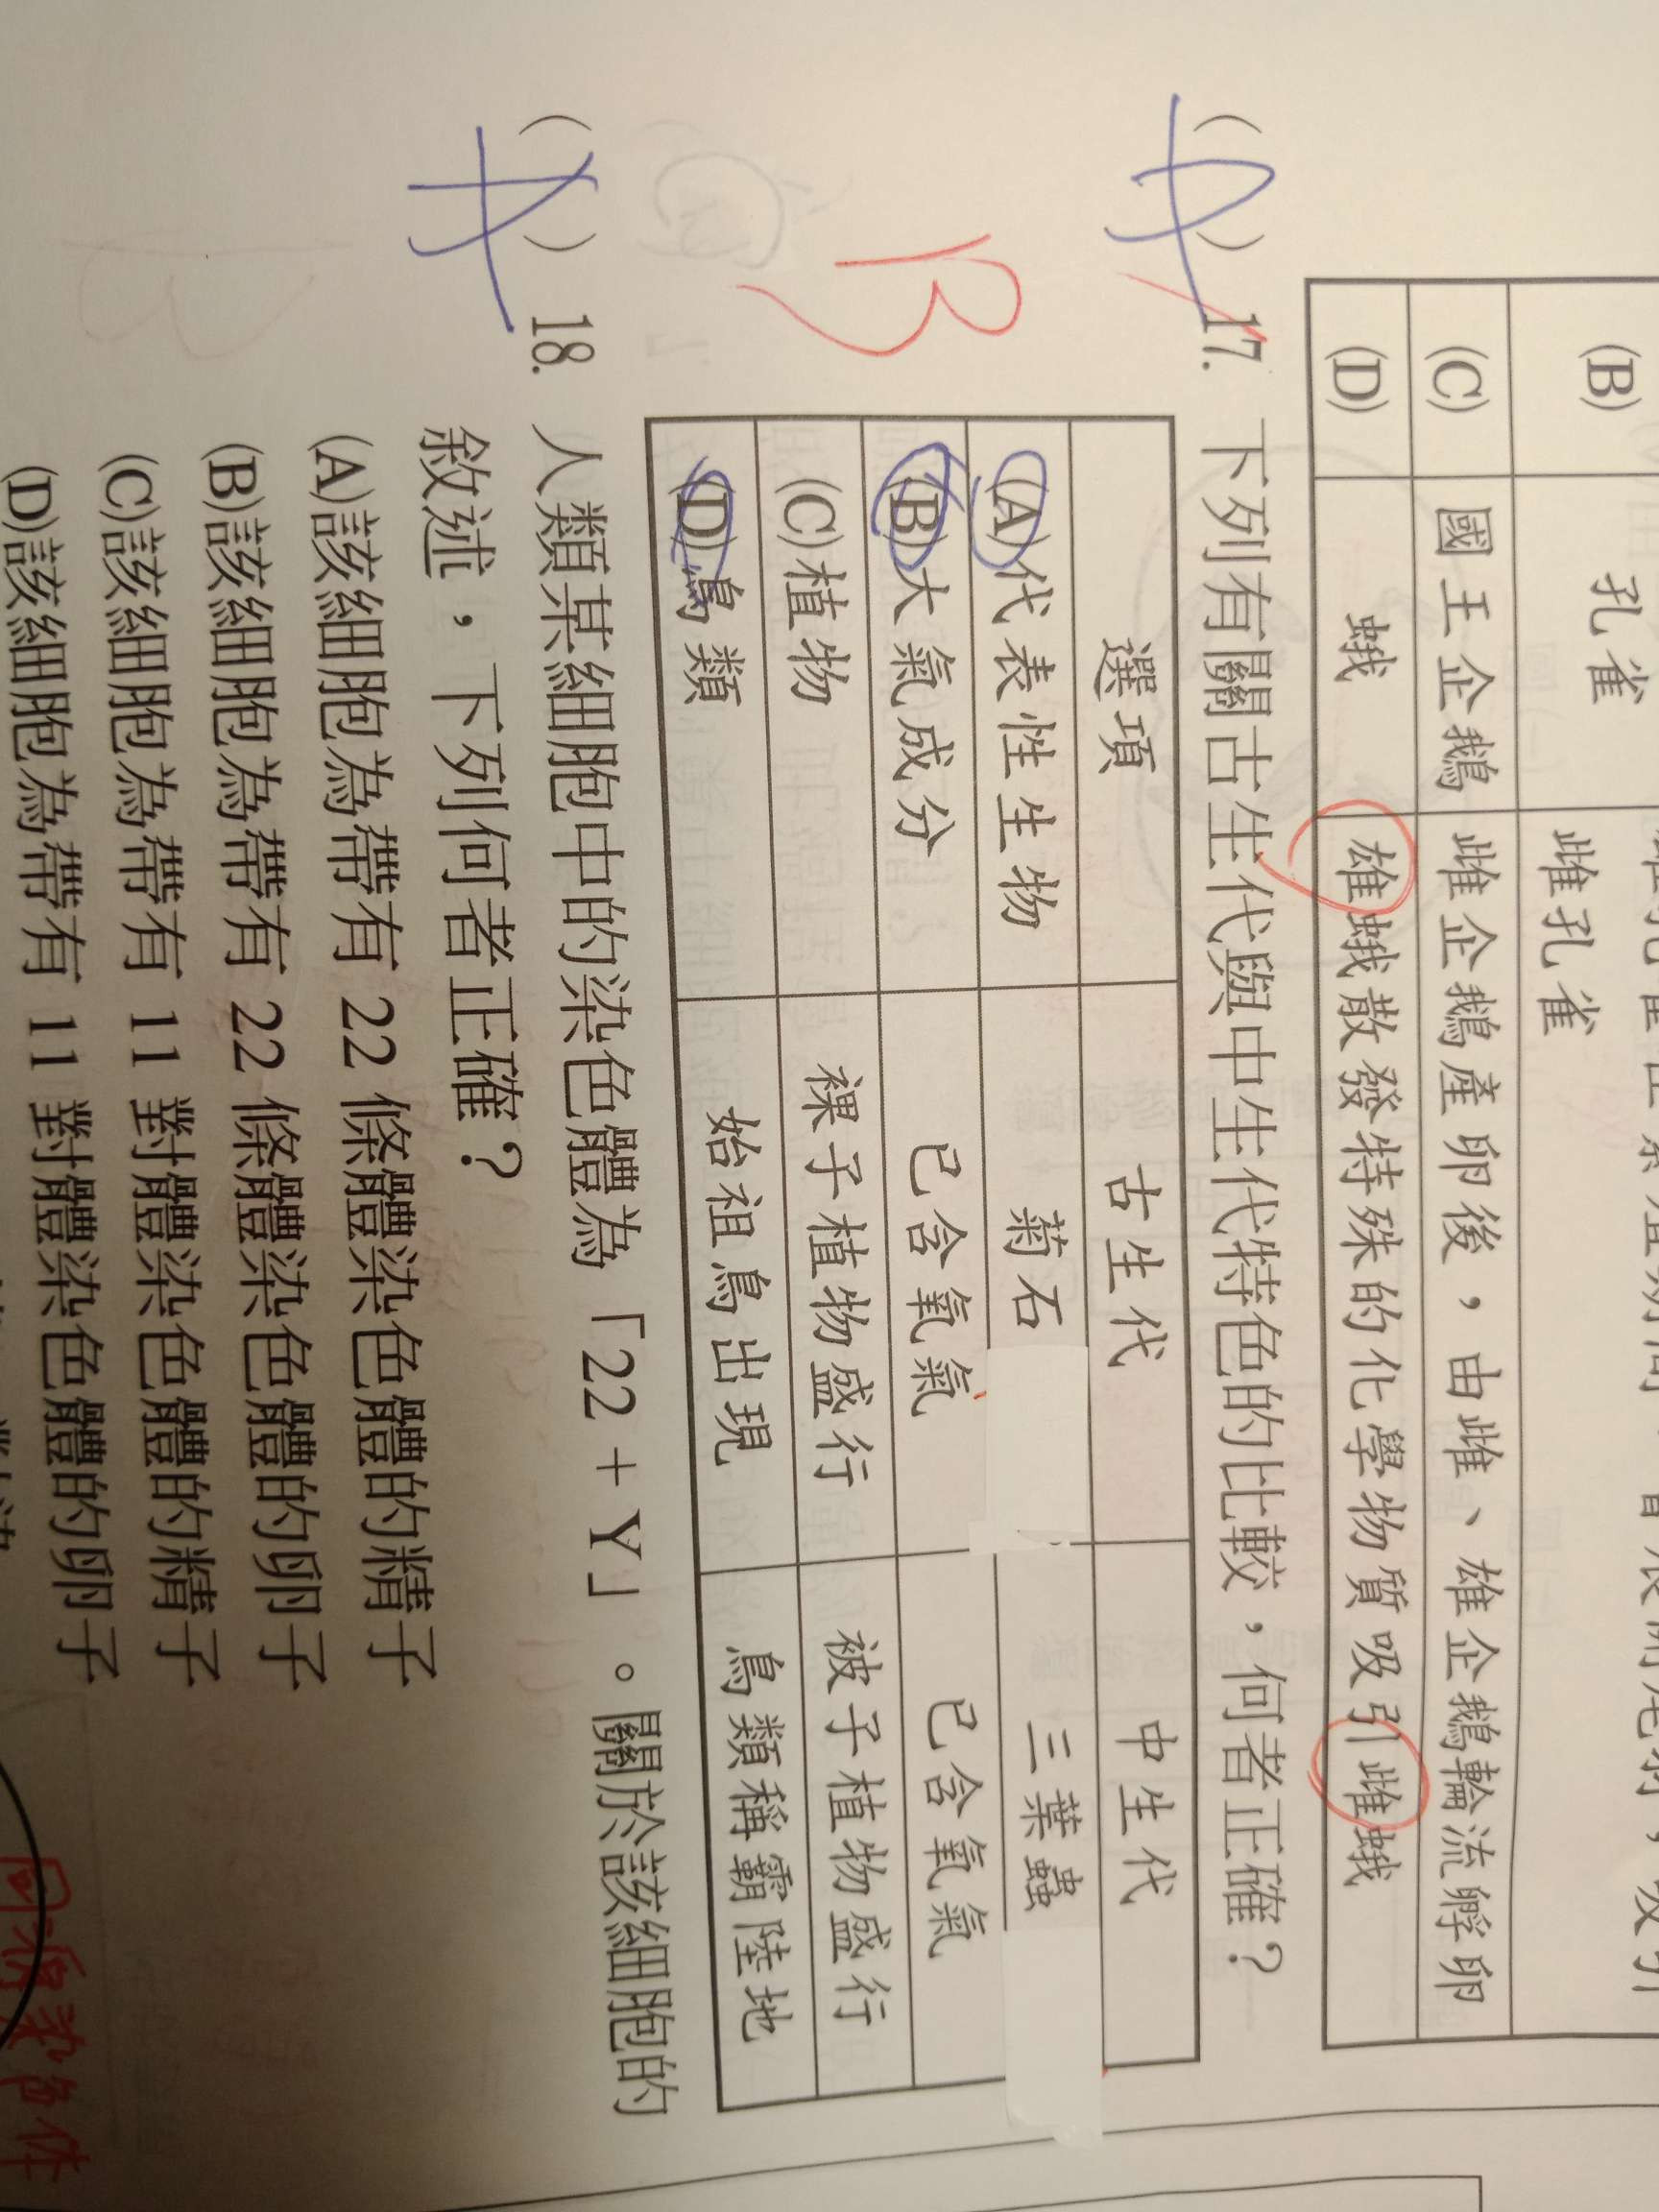 (B) 孔雀
雌孔雀
(C) 國王企鵝 雌企鵝產卵後，由雌、雄企鵝輪流孵卵
(D) 蛾 雄蛾散發特殊的化學物質吸引雌蛾
(A) 17. 下列有關古生代與中生代特色的比較，何者正確？
B
選項 古生代 中生代
(A)代表性生物 菊石 三葉蟲
(B)大氣成分 已含氧氣 已含氧氣
(C)植物 裸子植物盛行 被子植物盛行
(D)鳥類 始祖鳥出現 鳥類稱霸陸地
(A) 18. 人類某細胞中的染色體為「22 + Y」。關於該細胞的
敘述，下列何者正確？
(A)該細胞為帶有 22 條體染色體的精子
(B)該細胞為帶有 22 條體染色體的卵子
(C)該細胞為帶有 11 對體染色體的精子
(D)該細胞為帶有 11 對體染色體的卵子